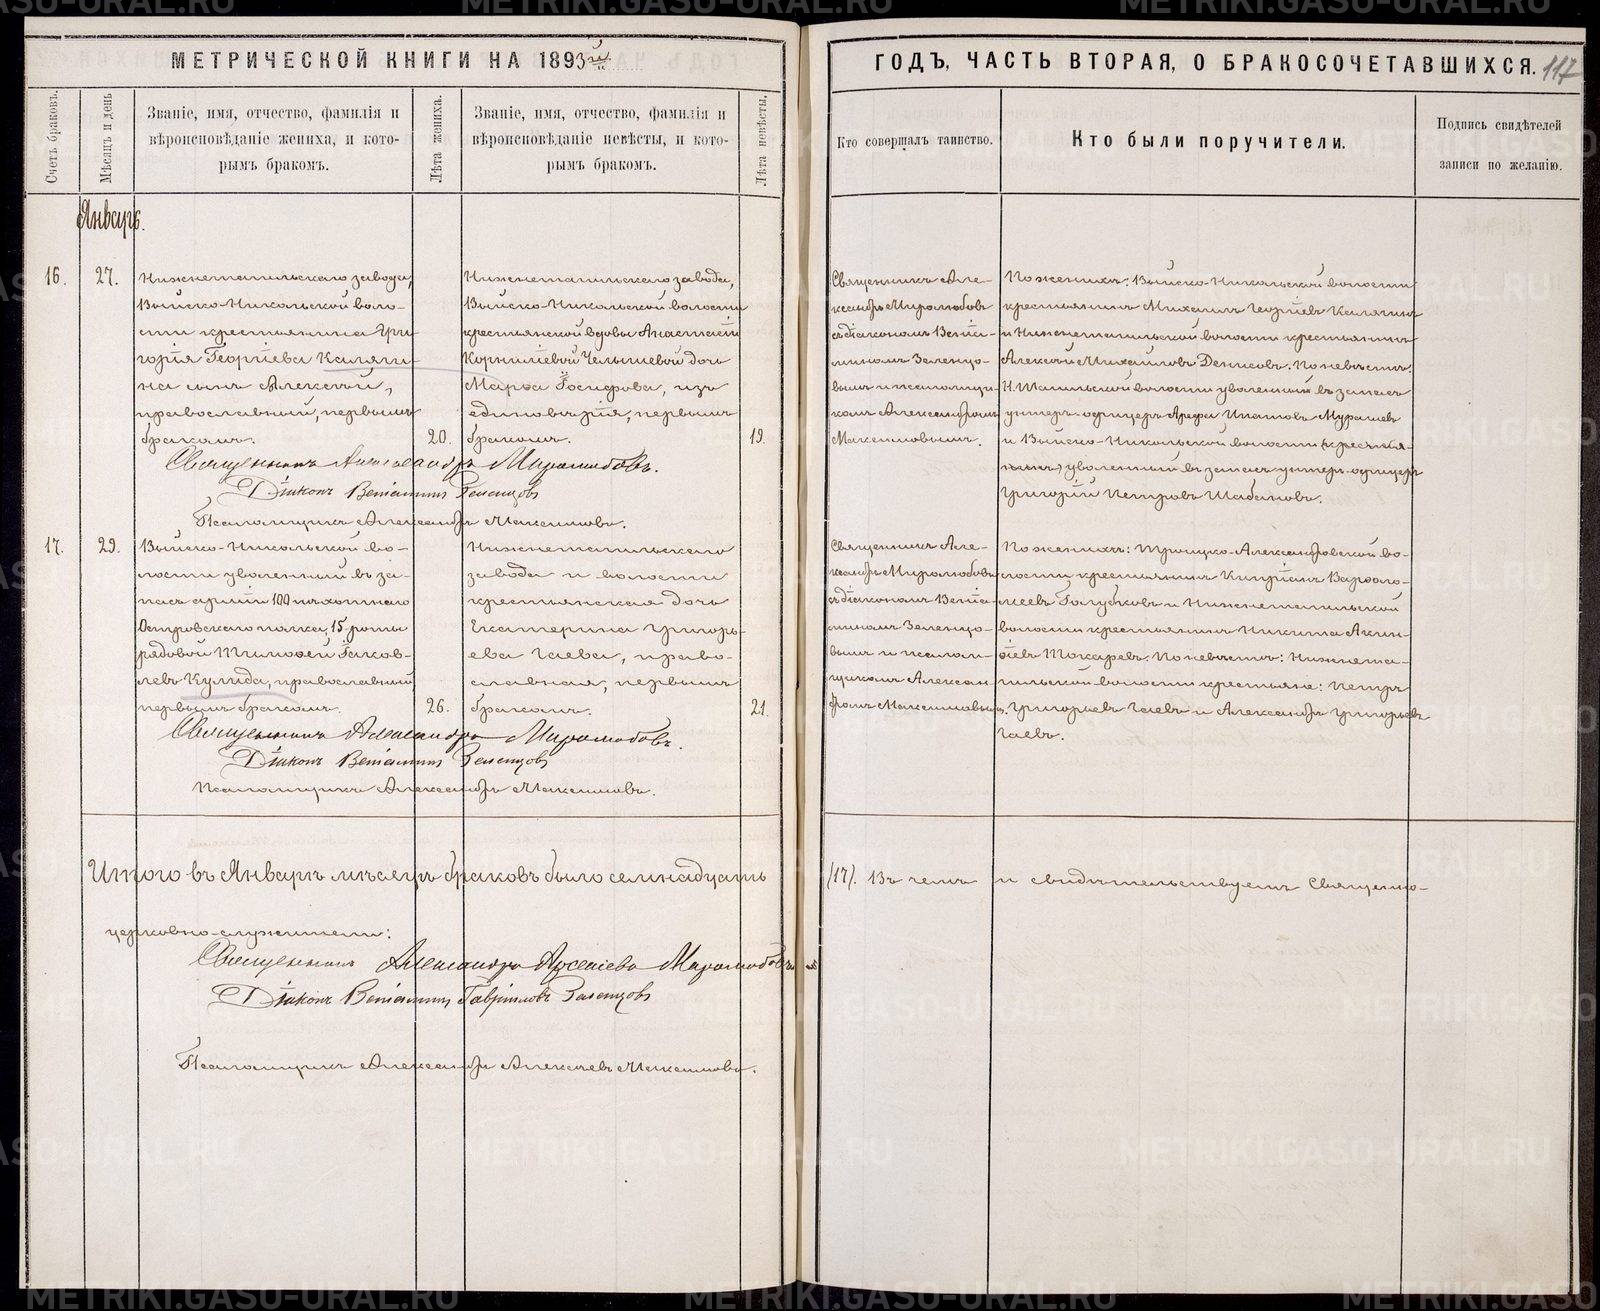 МЕТРИЧЕСКОЙ КНИГИ НА 1893й
ГОДЪ, ЧАСТЬ ВТОРАЯ, О БРАКОСОЧЕТАВШИХСЯ. 117
Счетъ браковъ.
Мѣсяцъ и день
Званіе, имя, отчество, фамилія и
вѣроисповѣданіе жениха, и кото-
рымъ бракомъ.
Лѣта жениха.
Званіе, имя, отчество, фамилія и
вѣроисповѣданіе невѣсты, и кото-
рымъ бракомъ.
Лѣта невѣсты.
Кто совершалъ таинство.
Кто были поручители.
Подпись свидѣтелей
записи по желанію.
Январь.
16.
27.
Нижнетагильскаго завода,
Выйско-Никольской воло-
сти крестьянина Гри-
горія Георгіева Каляги-
на сынъ Алексѣй,
православный, первымъ
бракомъ.
20.
Нижнетагильскаго завода,
Выйско-Никольской волости
крестьянской вдовы Анастасіи
Корниліевой Челышевой дочь
Марѳа Іосифова, изъ
единовѣрія, первымъ
бракомъ.
19.
Священникъ Але-
ксандръ Миролюбовъ
съ діакономъ Веніа-
миномъ Зеленцо-
вымъ и псаломщи-
комъ Александромъ
Максимовымъ.
По женихѣ: Выйско-Никольской волости
крестьянинъ Михаилъ Георгіевъ Калягинъ
и Нижнетагильской волости крестьянинъ
Алексѣй Михайловъ Денисовъ. По невѣстѣ:
Н. Тагильской волости уволенный въ запасъ
унтеръ-офицеръ Ареѳа Ипатовъ Мурашевъ
и Выйско-Никольской волости (крестья-
нинъ) уволенный въ запасъ унтеръ-офицеръ
Григорій Петровъ Шабановъ.
Священникъ Александръ Миролюбовъ.
Діаконъ Веніаминъ Зеленцовъ
Псаломщикъ Александръ Максимовъ.
17.
29.
Выйско-Никольской во-
лости уволенный въ за-
пасъ арміи 100 пѣхотнаго
Островскаго полка, 15 роты
рядовой Тимоѳей Іаков-
левъ Кулида, православный
первымъ бракомъ.
26.
Нижнетагильскаго
завода и волости
крестьянская дочь
Екатерина Григорь-
ева Гаева, право-
славная, первымъ
бракомъ.
21.
Священникъ Але-
ксандръ Миролюбовъ
съ діакономъ Веніа-
миномъ Зеленцо-
вымъ и псалом-
щикомъ Алексан-
дромъ Максимовымъ.
По женихѣ: Троицко-Александровской во-
лости крестьянинъ Кипріанъ Варѳоло-
меевъ Голубковъ и Нижнетагильской
волости крестьянинъ Никита Акин-
ѳіевъ Токаревъ. По невѣстѣ: Нижнета-
гильской волости крестьяне: Петръ
Григорьевъ Гаевъ и Александръ Григорьевъ
Гаевъ.
Священникъ Александръ Миролюбовъ.
Діаконъ Веніаминъ Зеленцовъ
Псаломщикъ Александръ Максимовъ.
Итого въ Январѣ мѣсяцѣ браковъ было семнадцать (17). Въ чемъ и свидѣтельствуемъ Священно-
церковно-служители:
Священникъ Александръ Арсеніевъ Миролюбовъ
Діаконъ Веніаминъ Гавріиловъ Зеленцовъ
Псаломщикъ Александръ Алексѣевъ Максимовъ.
METRIKI.GASO-URAL.RU